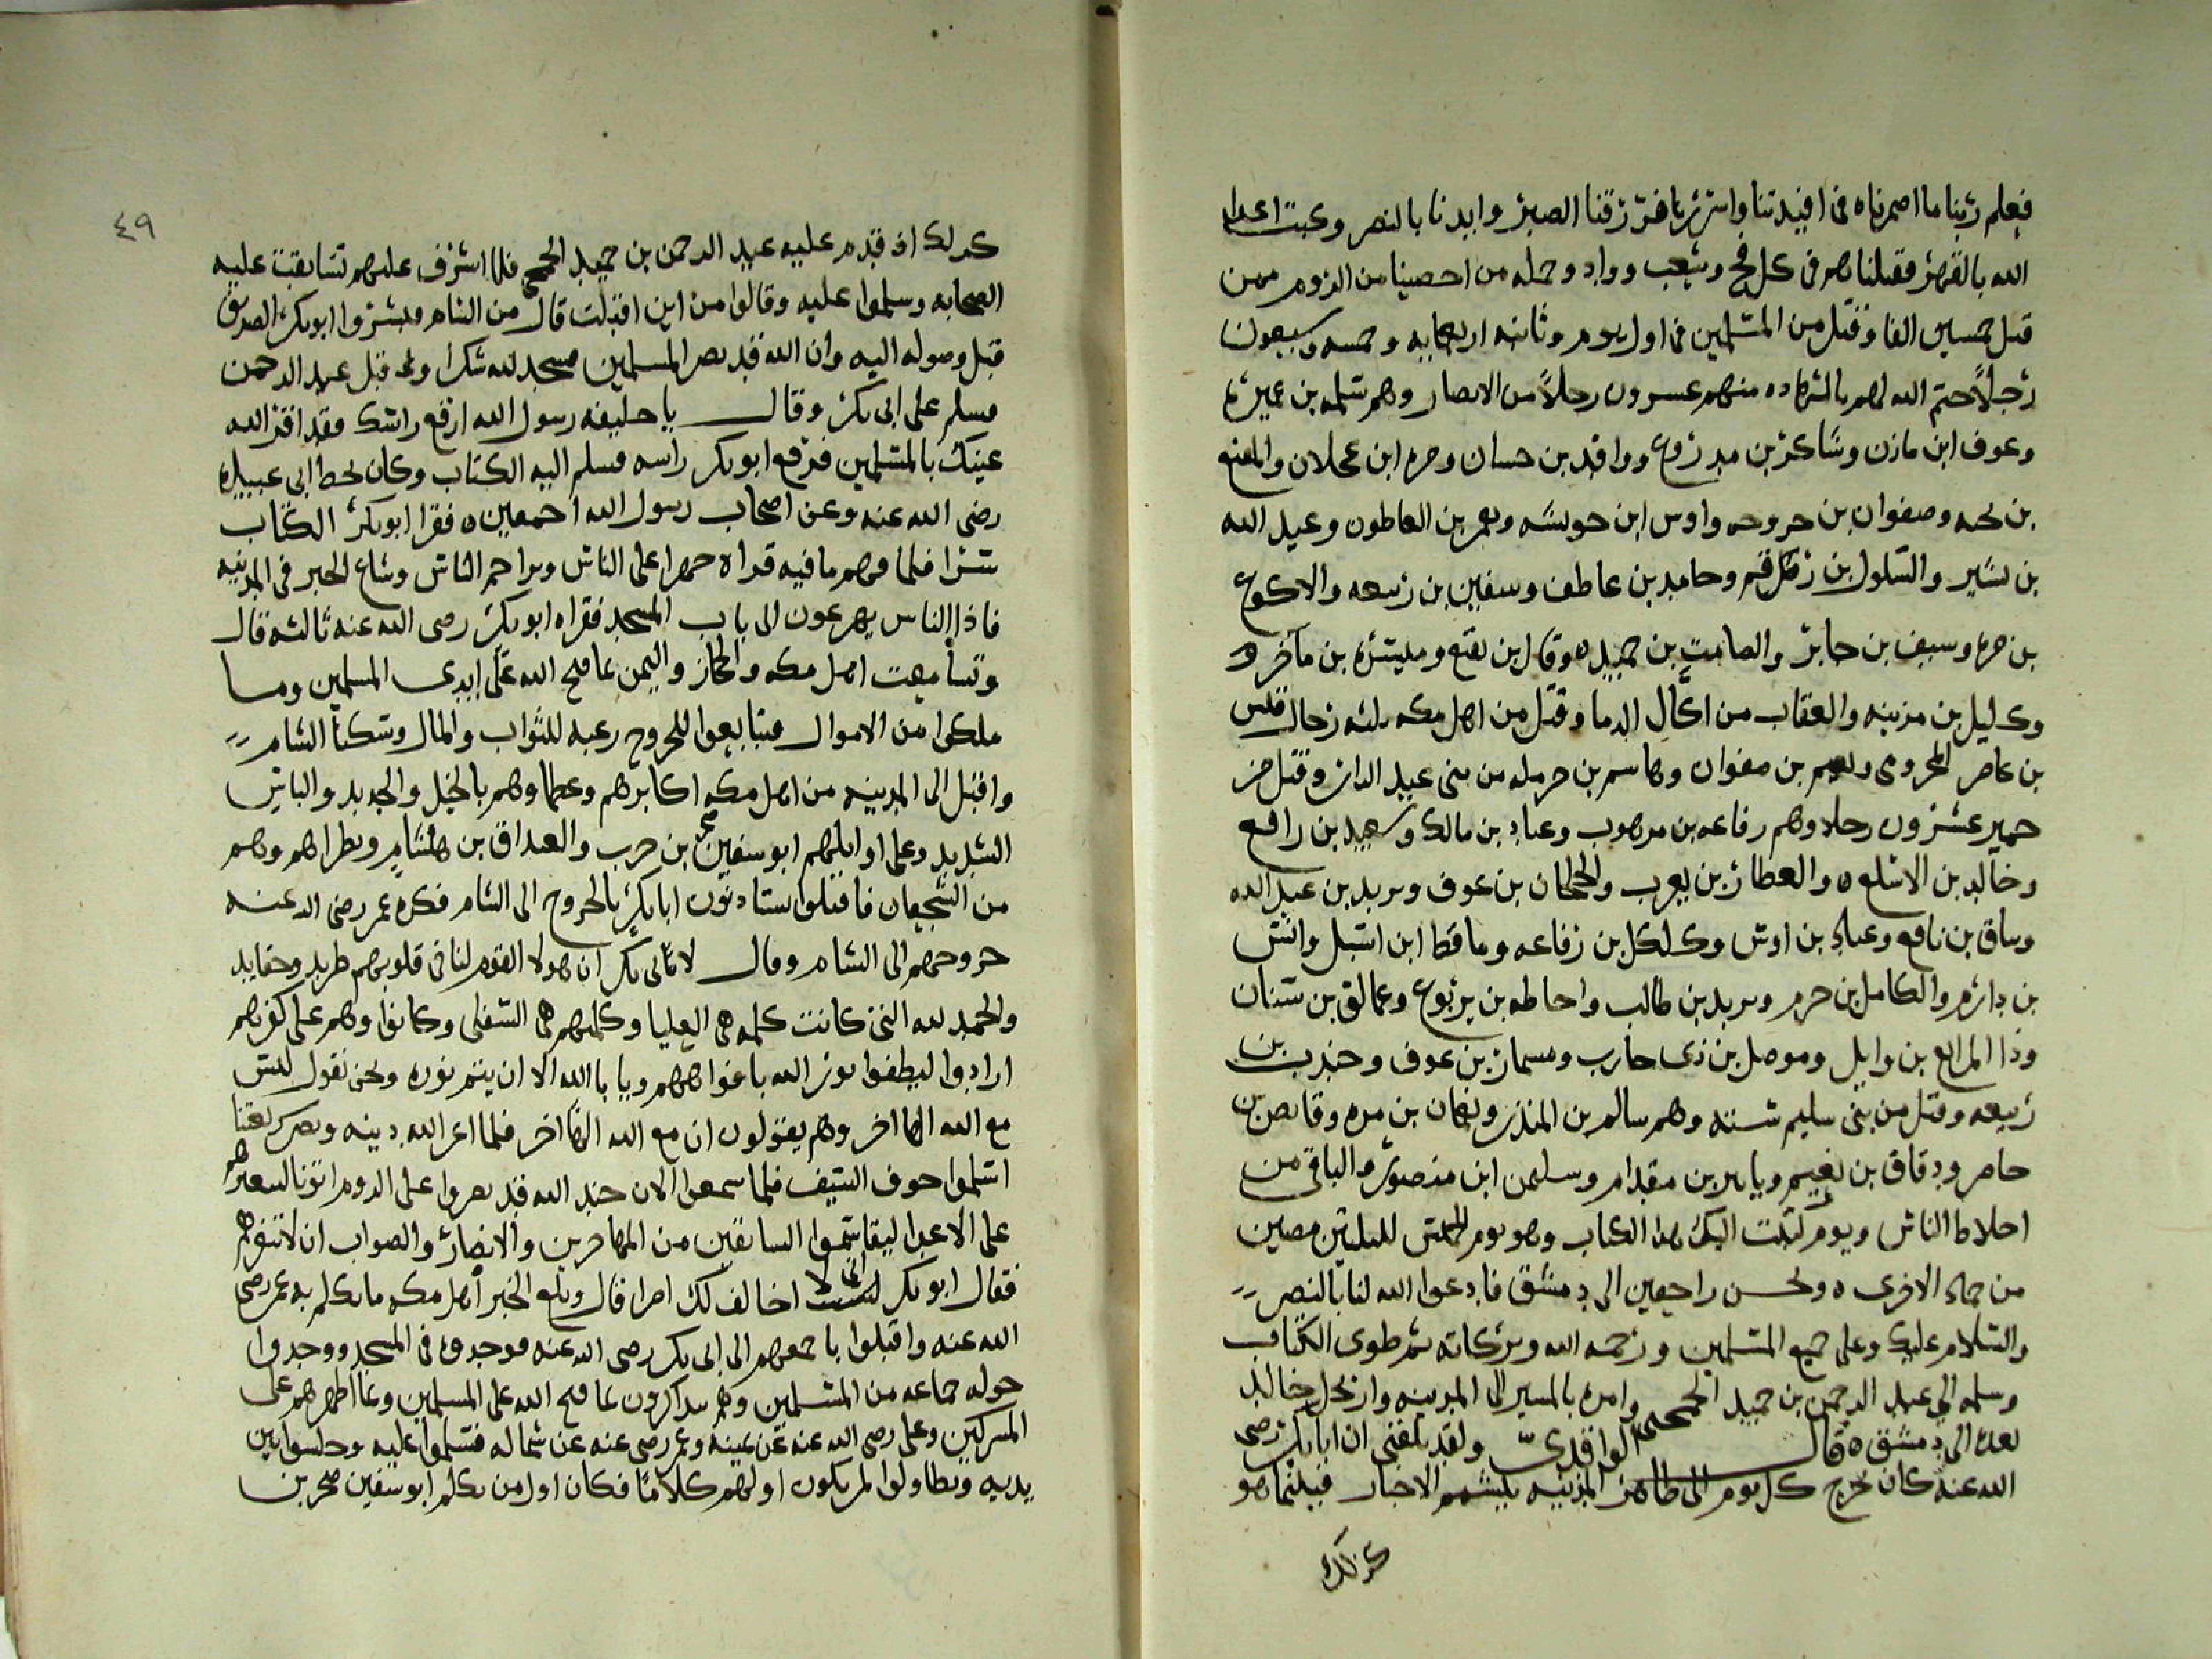 فعلم ربنا ما اضمرناه في افيدتنا واسررنا فرزقنا الصبر وايدنا بالنصر وكبت اعدا
الله بالقهر فقتلناهم في كل فج وشعب وواد وجمله من احصينا من الروم ممن
قتل خمسين الفا وقتل من المسلمين في اول يوم وثانيه اربعمايه وخمسه وسبعون
رجلاً ختم الله لهم بالشهاده منهم عسرون رجلاً من الانصار وهم سلمه بن عميره
وعوف ابن مازن وشاكر بن مبدروع وواقد بن حسان ومره ابن عجلان والمقنع
بن وصفوان بن واوس ابن بن العاطون وعبد الله
بن بشير والسلول بن وحامد بن عاطف وسفين بن ربيعه والاكوع
بن مره وسيف بن جابر والصامت بن حميد بن مقنع وميسره بن
وكليل بن مزينه والعقاب من اكال الدما وقتل من اهل مكه ثلثه رجال
بن عامر المخزومي بن صفوان وهاسم بن حرمله من بني عبد الدار وقتل من
حمير عشرون رجلا وهم رفاعه بن مرهوب وعباد بن مالك وسعيد بن رافع
وخالد بن الاسلع والعطار بن يعرب والحجان بن عوف ويزيد بن عبد الله
وساق بن نافع وعباد بن اوس وكلكل بن رفاعه وماقط ابن اسبل وانس
بن داره والكامل بن حرم ويزيد بن طالب واحاطه بن يربوع وعمالق بن سنان
وذا المرابع بن وايل وموصل بن ذي حارب ومسمار بن عوف وجندب بن
ربيعه وقتل من بني سليم سته وهم سالم بن المنذر ونعمان بن مره وقابص بن
عامر ودقاق بن نعيم ويابس بن مقدام وسليمن ابن منصور والباقي من
اخلاط الناس ويوم كتبت اليك هذا الكتاب وهو يوم الخميس لليلتين مضين
من جماد الاخرى ونحن راجعين الى دمشق فادعوا الله لنا بالنصر
والسلام عليك وعلى جميع المسلمين ورحمه الله وبركاته ثم طوى الكتاب
وسلمه الى عبد الرحمن بن حميد الجمحي وامره بالمسير الى المدينه وارتحل خالد
بعده الى دمشق قال الواقدي ولقد بلغني ان ابا بكر رضي
الله عنه كان يخرج كل يوم الى ظاهر المدينه يلتمس الاخبار فبينما هو
كذلك
٤٩
كذلك اذ قدم عليه عبد الرحمن بن حميد الجمحي فلما اشرف عليهم تسابقت عليه
الصحابه وسلموا عليه وقالوا من اين اقبلت قال من الشام وبشروا ابو بكر الصديق
قبل وصوله اليه وان الله قد نصر المسلمين فسجد لله شكرا وقد قبل عبد الرحمن
فسلم على ابي بكر وقال يا خليفه رسول الله ارفع راسك فقد اقر الله
عينك بالمسلمين فرفع ابو بكر راسه فسلم اليه الكتاب وكان بخط ابي عبيده
رضي الله عنه وعن اصحاب رسول الله اجمعين فقرا ابو بكر الكتاب
سرا فلما فهم ما فيه قراه جهرا على الناس وتزاحم الناس وشاع الخبر في المدينه
فاذا الناس يهرعون الى باب المسجد فقراه ابو بكر رضي الله عنه ثالثه قال
وتسامعت اهل مكه والحجاز واليمن بما فتح الله على ايدي المسلمين وما
ملكوا من الاموال فتتابعوا للخروج رغبه للثواب والمال وسكنا الشام
واقبل الى المدينه من اهل مكه اكابرهم وعظماوهم بالخيل والحديد والباس
الشديد وعلى اوايلهم ابو سفين صخر بن حرب والعيداق بن هشام ونظراهم وهم
من الشجعان فاقبلوا يستاذنون ابا بكر بالخروج الى الشام فكره عمر رضي الله عنه
خروجهم الى الشام وقال لابي بكر ان هولا القوم لنا في قلوبهم طرايد وحقايد
والحمد لله الذي كانت كلمه هي العليا وكلمتهم هي السفلى وكانوا وهم على كفرهم
ارادوا ليطفوا نور الله بافواههم ويابا الله الا ان يتم نوره ونحن نقول ليس
مع الله الها اخر وهم يقولون ان مع الله الها اخر فلما اعز الله دينه ونصر شريعتنا
اسلموا خوف السيف فلما سمعوا الان جند الله قد نصروا على الروم اتونا لنبعثهم
على الاعدا ليقاسموا السابقين من المهاجرين والانصار والصواب ان لا تنفرهم
فقال ابو بكر اني لا اخالف لك امرا قال وبلغ الخبر اهل مكه ما تكلم به عمر رضي
الله عنه واقبلوا باجمعهم الى ابي بكر رضي الله عنه فوجدوه في المسجد ووجدوا
حوله جماعه من المسلمين وهم يتذاكرون بما فتح الله على المسلمين وبما اظهرهم على
المسركين وعلي رضي الله عنه عن يمينه وعمر رضي عنه عن شماله فسلموا عليه وجلسوا بين
يديه وتطاولوا لم يكون اولهم كلاما فكان اول من تكلم ابو سفين صخر بن